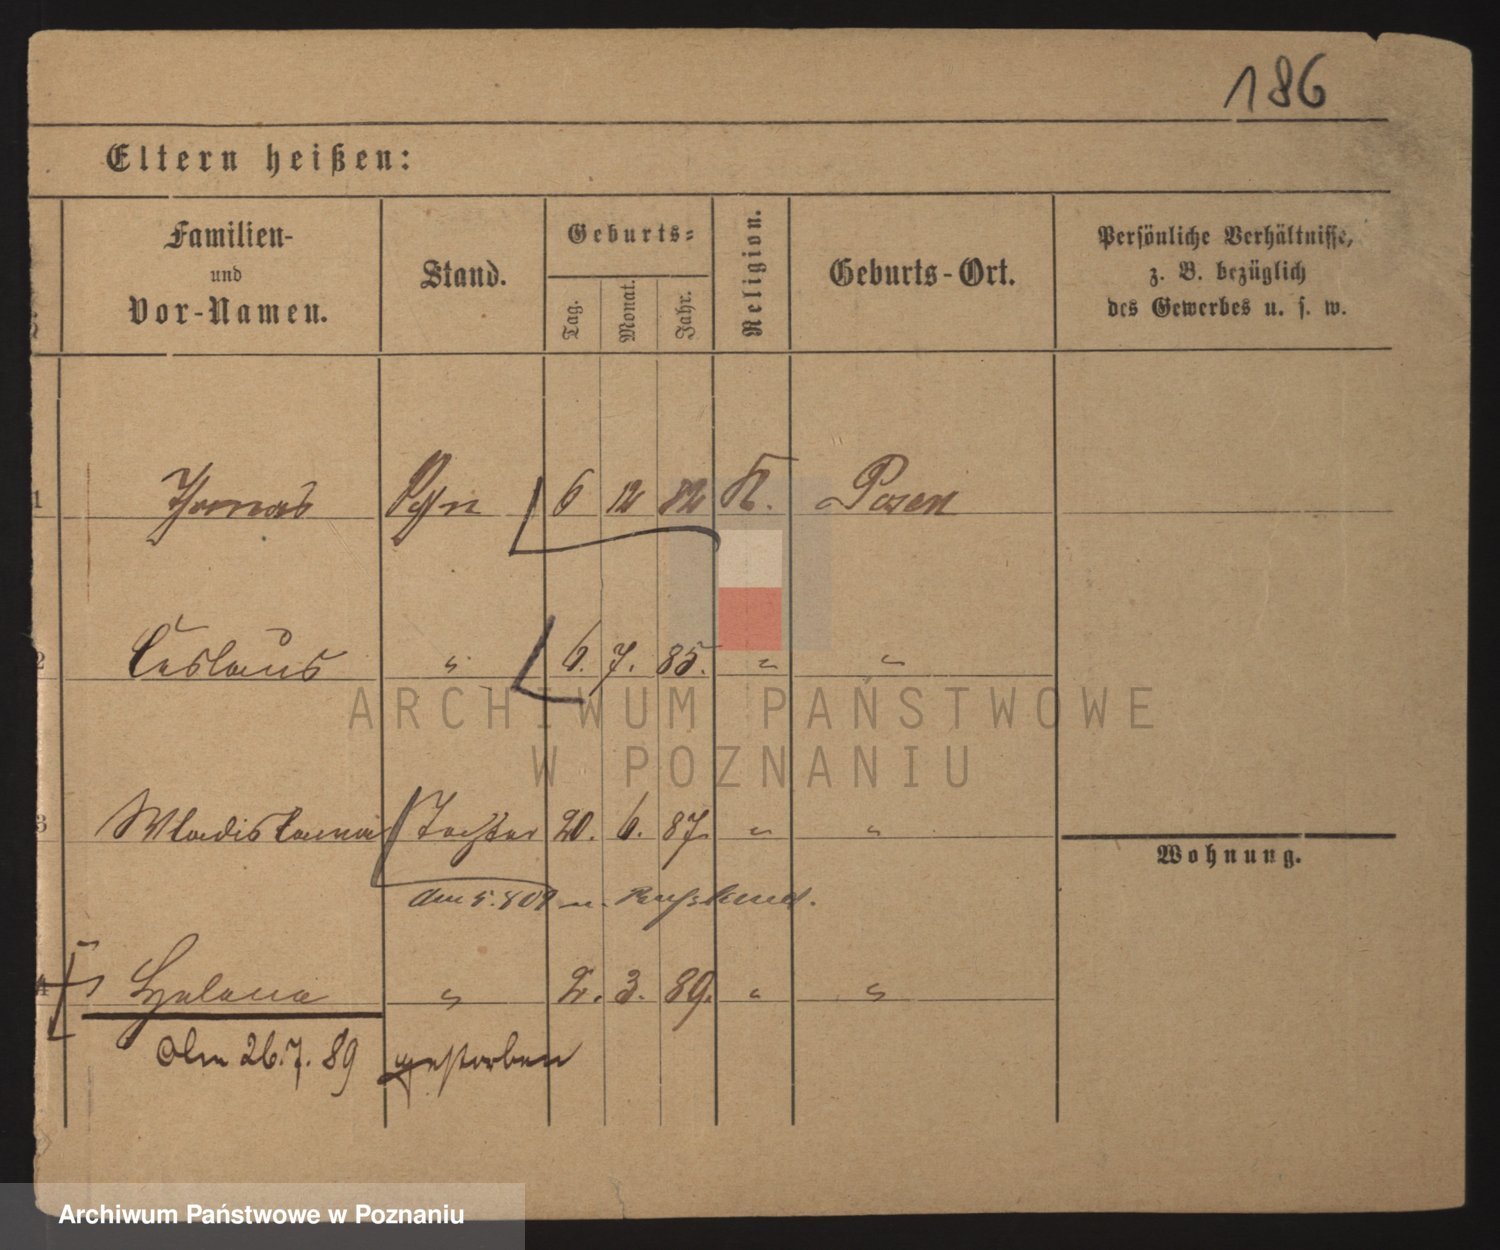 186
Eltern heißen:
Familien-
und
Vor-Namen.
Stand.
Geburts-
Tag.
Monat.
Jahr.
Religion.
Geburts-Ort.
Persönliche Verhältnisse,
z. B. bezüglich
des Gewerbes u. s. w.
1 Thomas Sohn 6 12 82 K. Posen
2 Ceslaus " 6. 7. 85. " "
ARCHIWUM PAŃSTWOWE
W POZNANIU
3 Wladislawa Tochter 20. 6. 87. " "
Wohnung.
Am n. Russland.
4 Helena " 2. 3. 89. " "
Am 26.7.89 gestorben
Archiwum Państwowe w Poznaniu